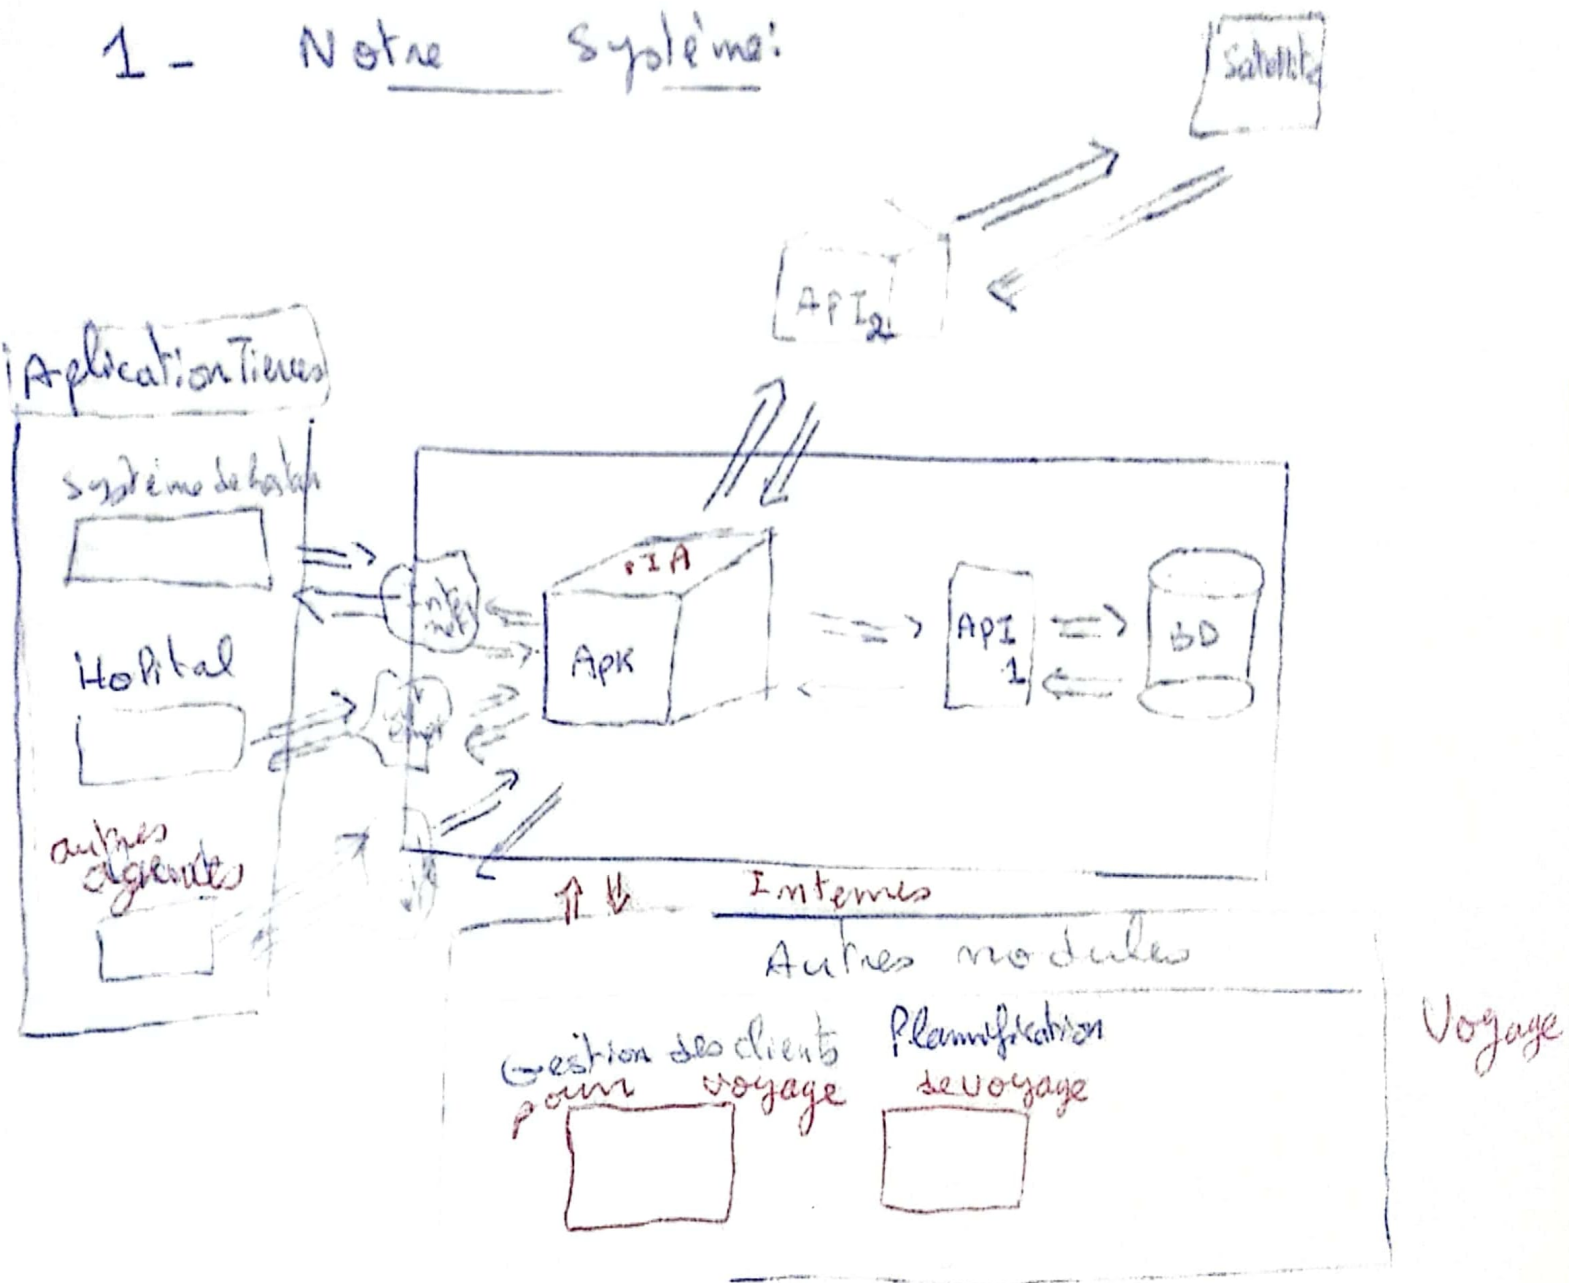 1- Notre Système:
Satellite
API2
Aplication Tierces
Système de
Hopital
autres
agences
Inter
net
IA
APK
API
1
BD
Internes
Autres modules
Gestion des clients
pour voyage
Planification
de voyage
Voyage